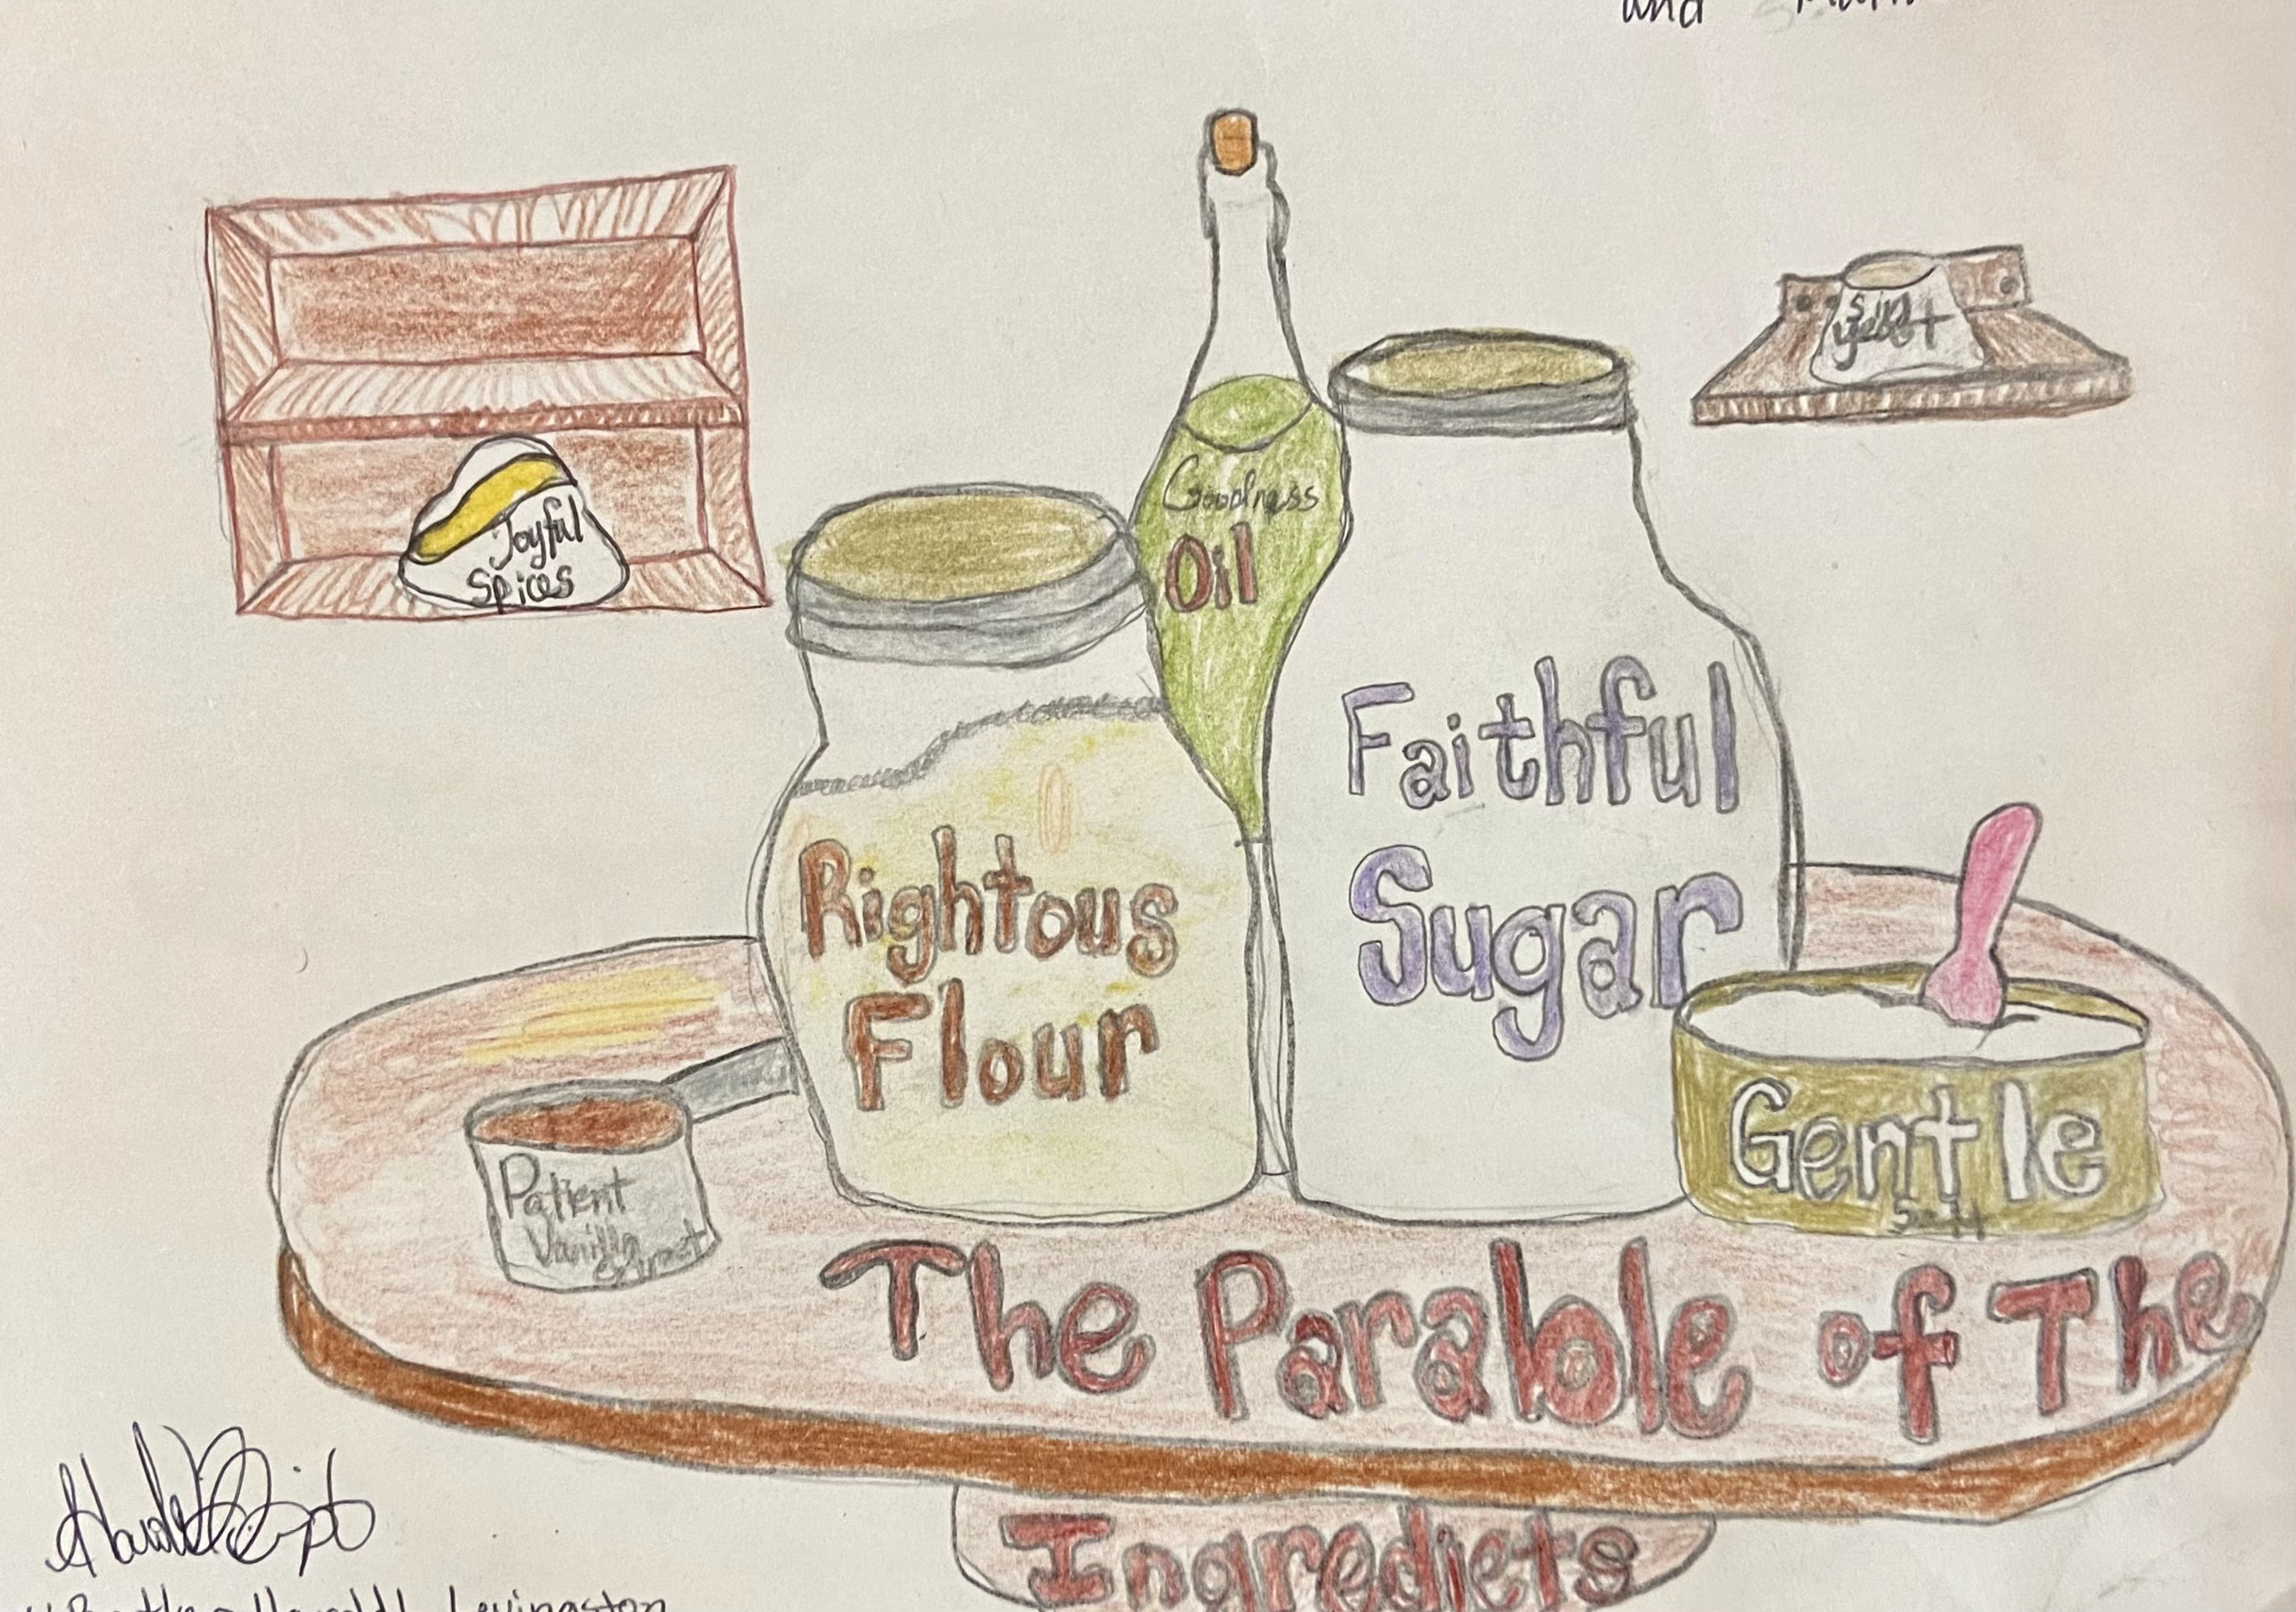 and
Joyful
Spices
Goodness
Oil
sin
yeast
Faithful
Sugar
Rightous
Flour
Gentle
Salt
Patient
Vanilla
Extract
The Parable of The
Ingrediets
Harold Levingston